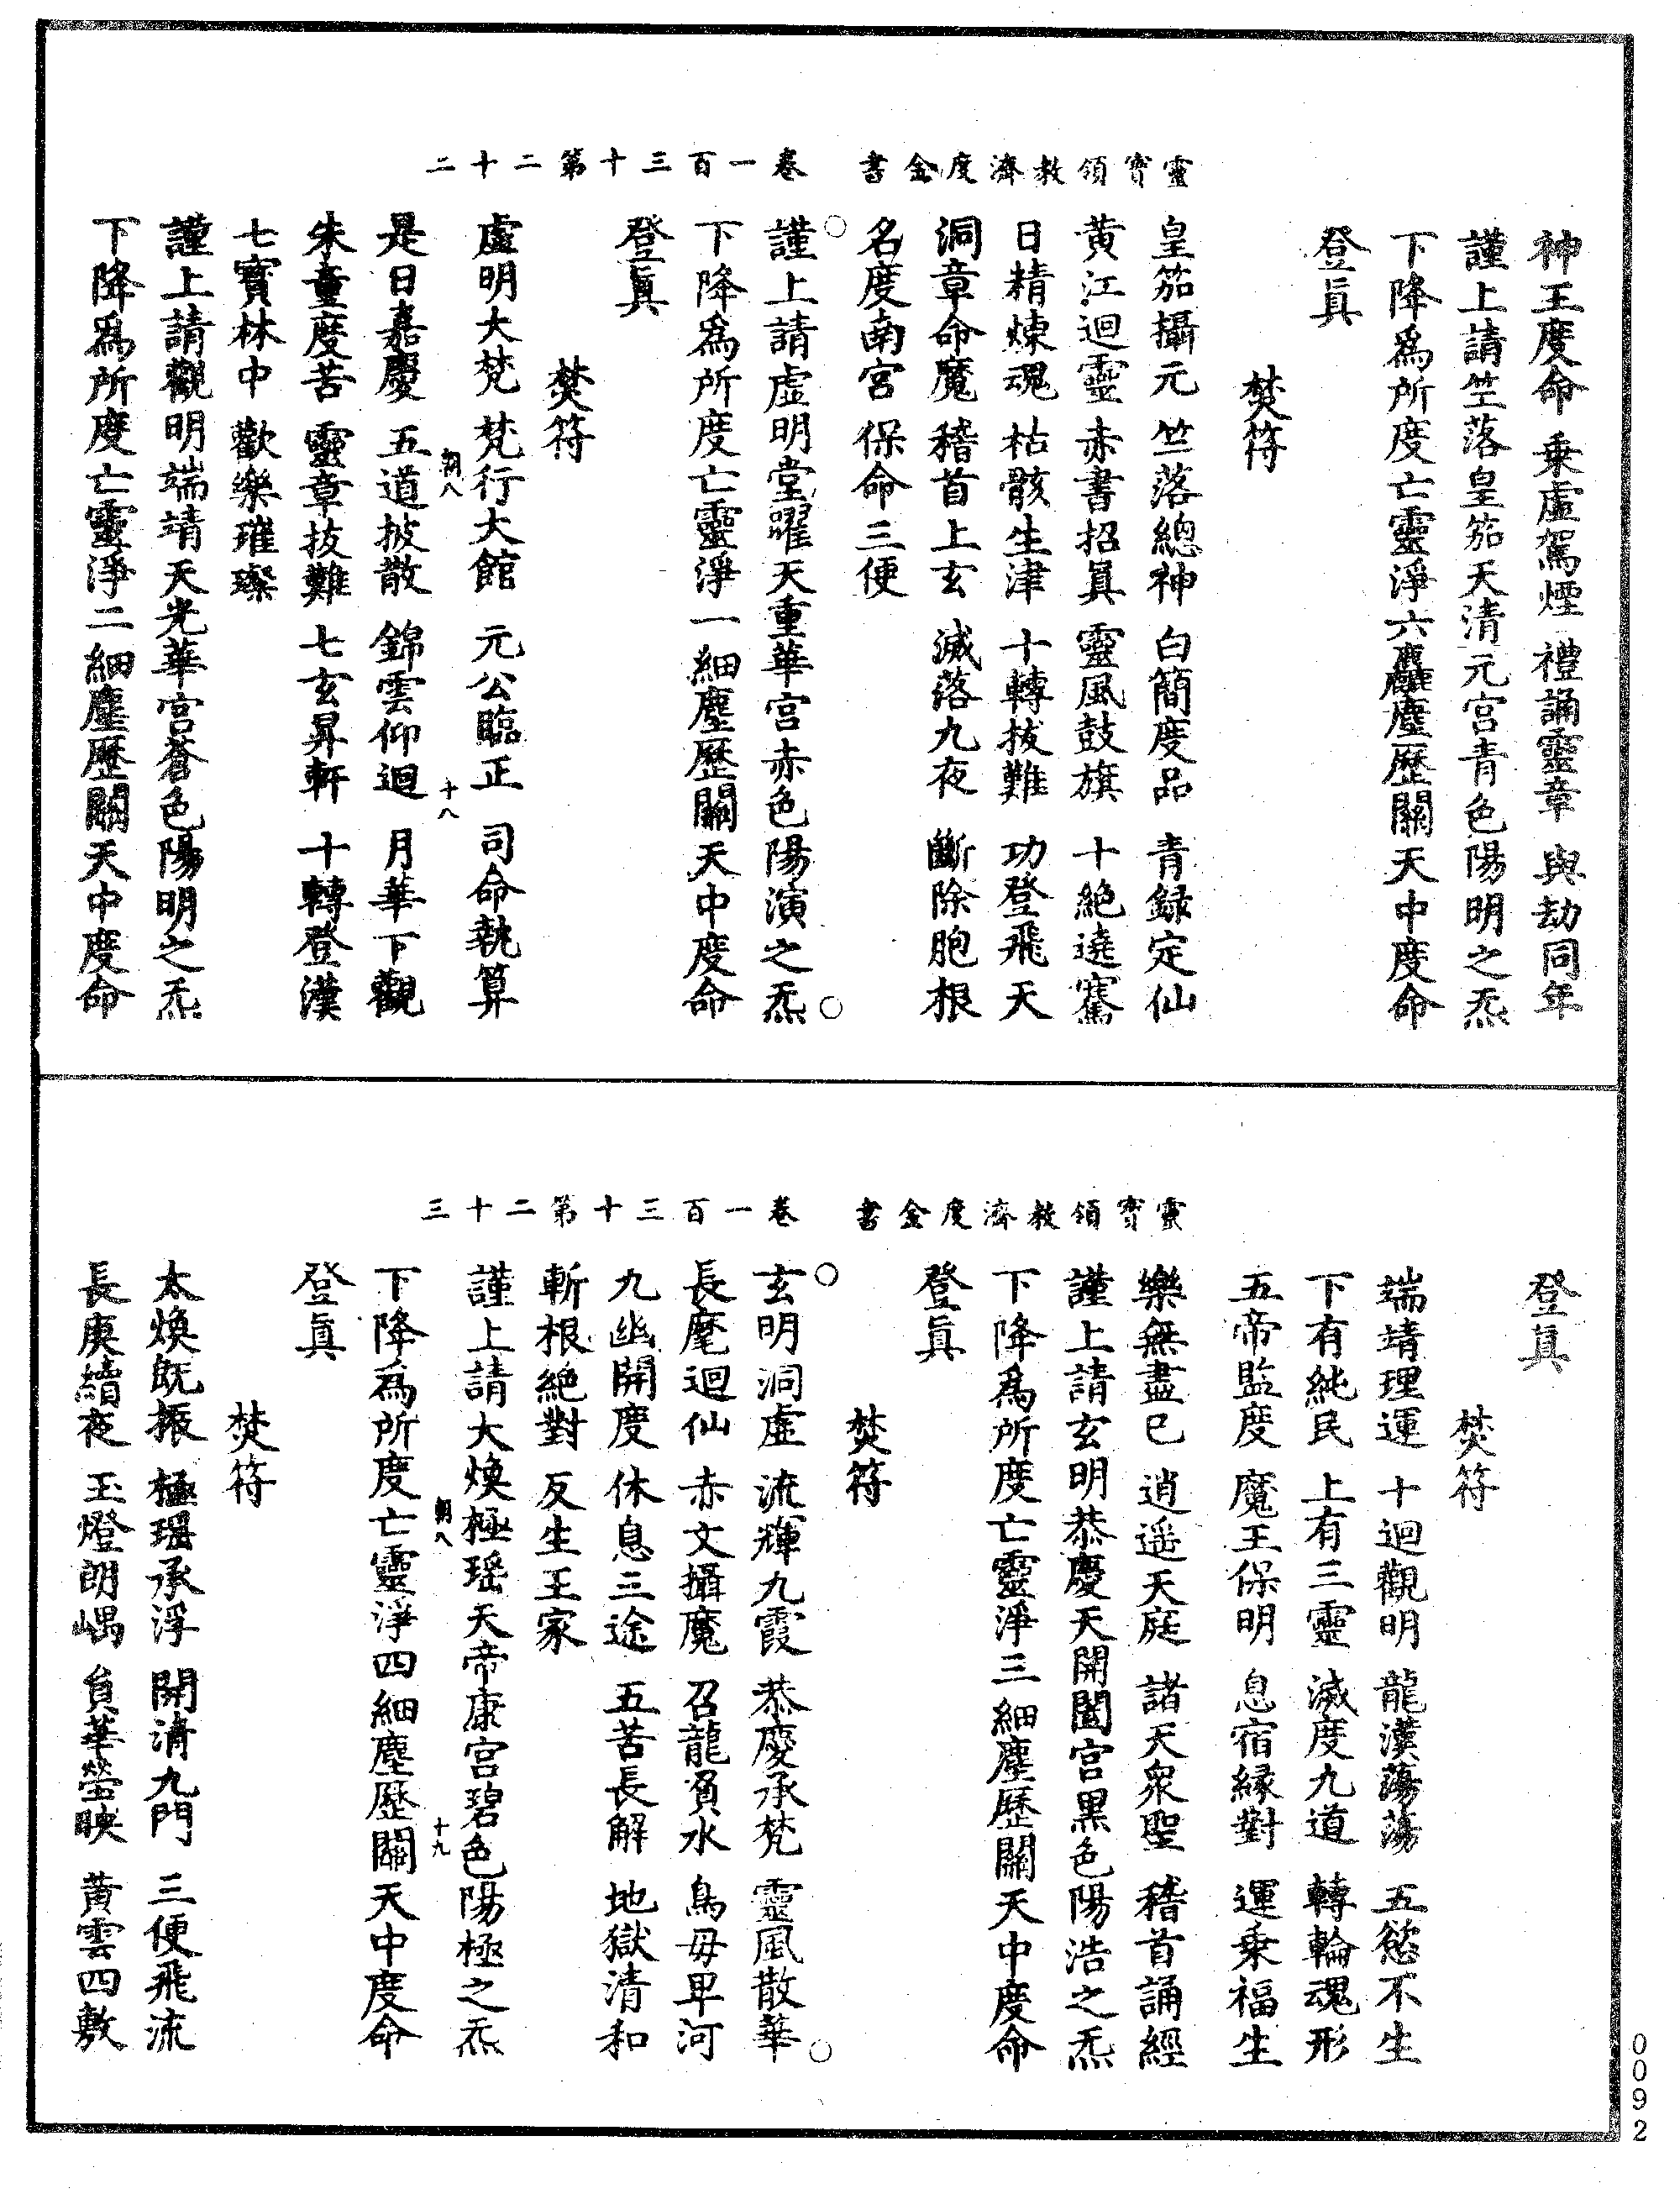 靈寶領教濟度金書　卷一百三十第二十二
神王度命　乗虛駕煙　禮誦靈章　與劫同年
謹上請竺落皇笳天清元宮青色陽明之炁
下降爲所度亡靈淨六麤塵歷關天中度命
登眞
焚符
皇笳攝元　竺落總神　白簡度品　青録定仙
黄江迴靈　赤書招眞　靈風鼓旗　十絶遶騫
日精煉魂　枯骸生津　十轉拔難　功登飛天
洞章命魔　稽首上玄　滅落九夜　斷除胞根
名度南宮　保命三便
謹上請虛明堂曜天重華宮赤色陽演之炁
下降爲所度亡靈淨一細塵歷關天中度命
登眞
焚符
虛明大梵　梵行大館　元公臨正　司命執算
朝八　十八
是日嘉慶　五道披散　錦雲仰迴　月華下觀
朱童度苦　靈章拔難　七玄昇軒　十轉登漢
七寶林中　歡樂璀璨
謹上請觀明端靖天光華宮蒼色陽明之炁
下降爲所度亡靈淨二細塵歷關天中度命
靈寶領教濟度金書　卷一百三十第二十三
登眞
焚符
端靖理運　十迴觀明　龍漢蕩蕩　五慾不生
下有純民　上有三靈　滅度九道　轉輪魂形
五帝監度　魔王保明　息宿縁對　運乗福生
樂無盡已　逍遥天庭　諸天衆聖　稽首誦經
謹上請玄明恭慶天開闔宮黒色陽浩之炁
下降爲所度亡靈淨三細塵歷關天中度命
登眞
焚符
玄明洞虛　流輝九霞　恭慶承梵　靈風散華
長麾迴仙　赤文攝魔　召龍負水　鳥毋卑河
九幽開度　休息三途　五苦長解　地獄清和
斬根絶對　反生王家
謹上請太煥極瑶天帝康宮碧色陽極之炁
朝八　十九
下降爲所度亡靈淨四細塵歷關天中度命
登眞
焚符
太煥既振　極瑶承浮　開清九門　三便飛流
長庚續夜　玉燈朗嵎　負華螢映　黄雲四敷
0092